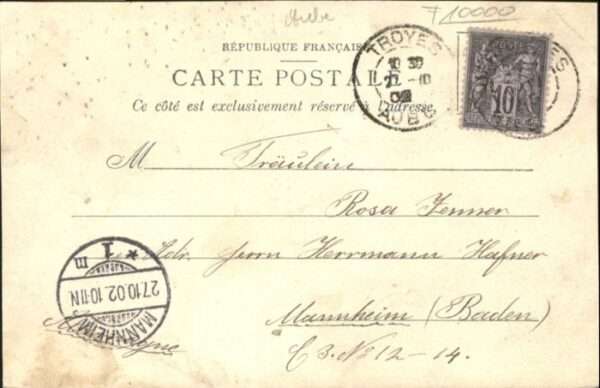 Aube
F10000
RÉPUBLIQUE FRANÇAISE
CARTE POSTALE
Ce côté est exclusivement réservé à l'adresse
TROYES
10 30
27 - 10
02
AUBE
10
M Fräulein
Rosa Jenner
Adr. Herrn Herrmann Hafner
Mannheim (Baden)
C 3. No 12 - 14.
Allemagne
* 1 m
27.10.02.10-11N.
MANNHEIM